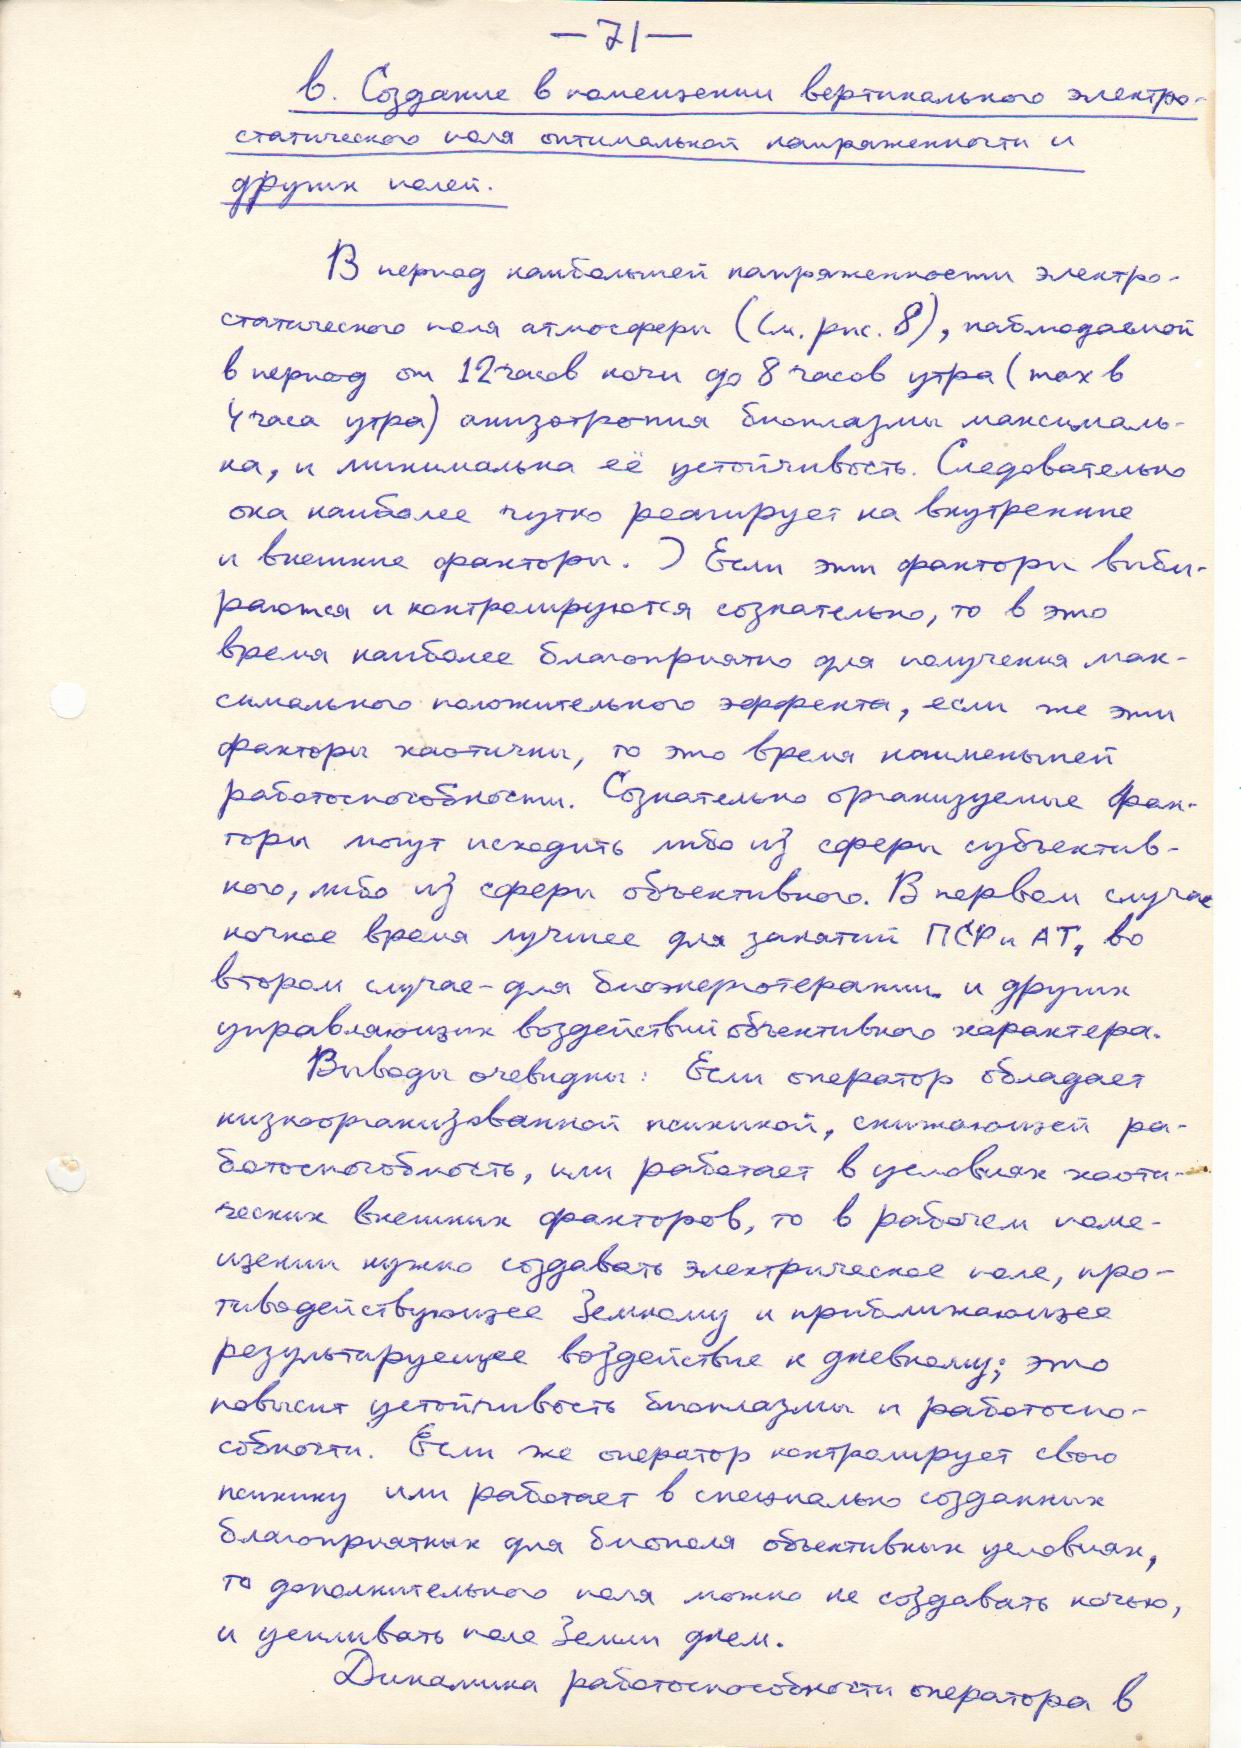 — 71 —
в. Создание в помещении вертикального электро-
статического поля оптимальной напряженности и
других полей.
В период наибольшей напряженности электро-
статического поля атмосферы (см. рис. 8), наблюдаемой
в период от 12 часов ночи до 8 часов утра (max в
4 часа утра) анизотропия биоплазмы максималь-
на, и минимальна её устойчивость. Следовательно
она наиболее чутко реагирует на внутренние
и внешние факторы. ) Если эти факторы выби-
раются и контролируются сознательно, то в это
время наиболее благоприятно для получения мак-
симального положительного эффекта, если же эти
факторы хаотичны, то это время наименьшей
работоспособности. Сознательно организуемые фак-
торы могут исходить либо из сферы субъектив-
ного, либо из сферы объективного. В первом случае
ночное время лучшее для занятий ПСР и АТ, во
втором случае - для биоэнерготерапии и других
управляющих воздействий объективного характера.
Выводы очевидны: Если оператор обладает
низкоорганизованной психикой, снижающей ра-
ботоспособность, или работает в условиях хаоти-
ческих внешних факторов, то в рабочем поме-
щении нужно создавать электрическое поле, про-
тиводействующее Земному и приближающее
результирующее воздействие к дневному; это
повысит устойчивость биоплазмы и работоспо-
собности. Если же оператор контролирует свою
психику или работает в специально созданных
благоприятных для биополя объективных условиях,
то дополнительного поля можно не создавать ночью,
и усиливать поле Земли днем.
Динамика работоспособности оператора в